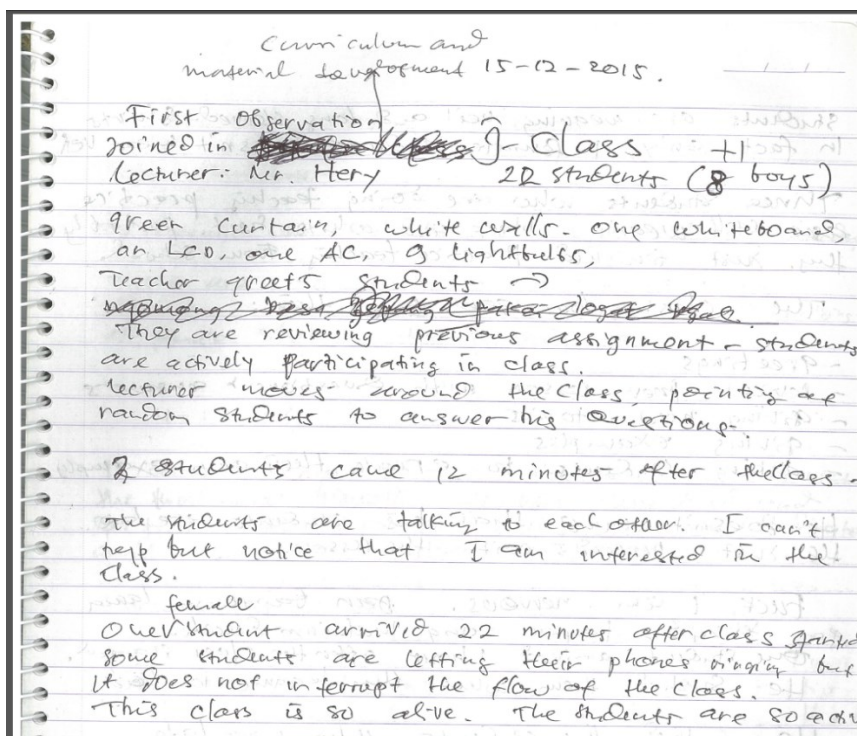 curriculum and
material development 15-12-2015.
First observation
Joined in G-Class +1
Lecturer: Mr. Hery 22 students (8 boys)
green curtain, white walls. one whiteboard,
an LCD, one AC, 9 lightbulbs,
Teacher greets students →
They are reviewing previous assignment - students
are actively participating in class.
lecturer moves around the class, pointing at
random students to answer his questions.
2 students came 12 minutes after the class.
The students are talking to each other. I can't
help but notice that I am interested in the
class.
female
One student arrived 22 minutes after class started
some students are letting their phones ringing but
it does not interrupt the flow of the class.
This class is so alive. The students are so